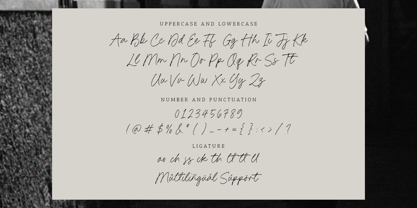 UPPERCASE AND LOWERCASE
Aa Bb Cc Dd Ee Ff Gg Hh Ii Jj Kk
Ll Mm Nn Oo Pp Qq Rr Ss Tt
Uu Vv Ww Xx Yy Zz
NUMBER AND PUNCTUATION
0123456789
(@ # $ % & * ( ) _ - + = { } : < > / ?
LIGATURE
ch ss ck th tt ll
Múltílíngúál Súppórt